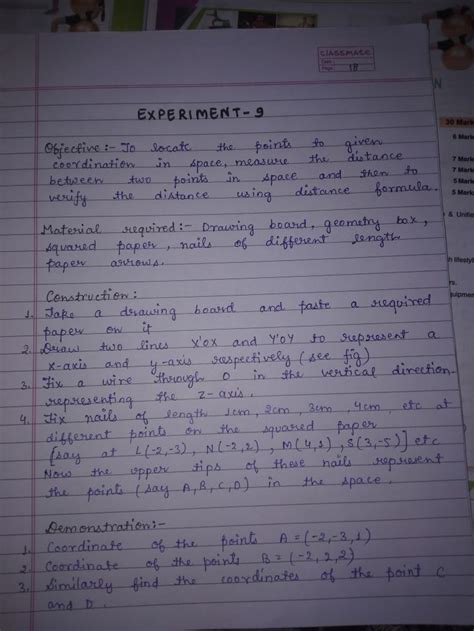 CLASSMATE
Date :
Page : 18
EXPERIMENT-9
Objective :- To locate the points to given
coordination in space, measure the distance
between two points in space and then to
verify the distance using distance formula.
Material required :- Drawing board, geometry box,
squared paper, nails of different length
paper arrows.
Construction :
1. Take a drawing board and paste a required
paper on it
2. Draw two lines X'OX and Y'OY to represent a
x-axis and y-axis respectively (see fig)
3. Fix a wire through O in the vertical direction
representing the z-axis.
4. Fix nails of length 1cm, 2cm, 3cm, 4cm, etc at
different points on the squared paper
[say at L(-2,-3), N(-2,2), M(4,1), S(3,-5)] etc
Now the upper tips of these nails represent
the points (say A,B,C,D) in the space.
Demonstration:-
1. Coordinate of the points A = (-2,-3,1)
2. Coordinate of the points B = (-2,2,2)
3. Similarly find the coordinates of the point C
and D.
N
30 Mark
6 Mark
7 Mark
7 Mark
5 Mark
5 Mark
& Unifie
h lifestyl
rs.
quipmen